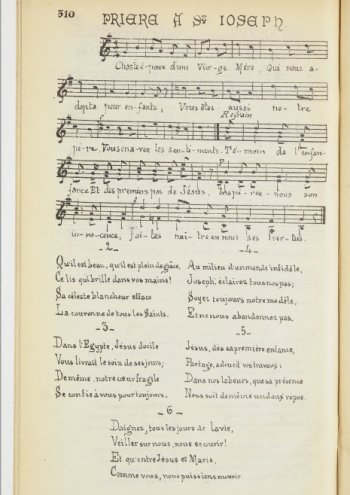 310
PRIERE A St IOSEPH
Chaste époux d'une Vierge Mère, Qui nous a-
dopta pour enfants, Vous êtes aussi notre
Refrain
père, Vous en avez les sentiments. Témoin de l'enfan-
fance Et des premiers pas de Jésus, son
innocence, Faites naître en nous ses Vertus.
-2-
Qu'il est beau, qu'il est plein de grâce,
Ce lis qui brille dans vos mains!
Sa céleste blancheur efface
La couronne de tous les Saints.
-3-
Dans l'Egypte, Jésus docile
Vous livrait le soin de ses jours;
De même, notre cœur fragile
Se confie à vous pour toujours.
-4-
Au milieu d'un monde infidèle,
Joseph, éclairez tous nos pas;
Soyez toujours notre modèle,
Et ne nous abandonnez pas.
-5-
Jésus, dès sa première enfance,
Partagea, adoucit vos travaux;
Dans nos labeurs, que sa présence
Nous soit de même un doux repos.
-6-
Daignez, tous les jours de la vie,
Veiller sur nous, nous secourir!
Et qu'entre Jésus et Marie,
Comme vous, nous puissions mourir